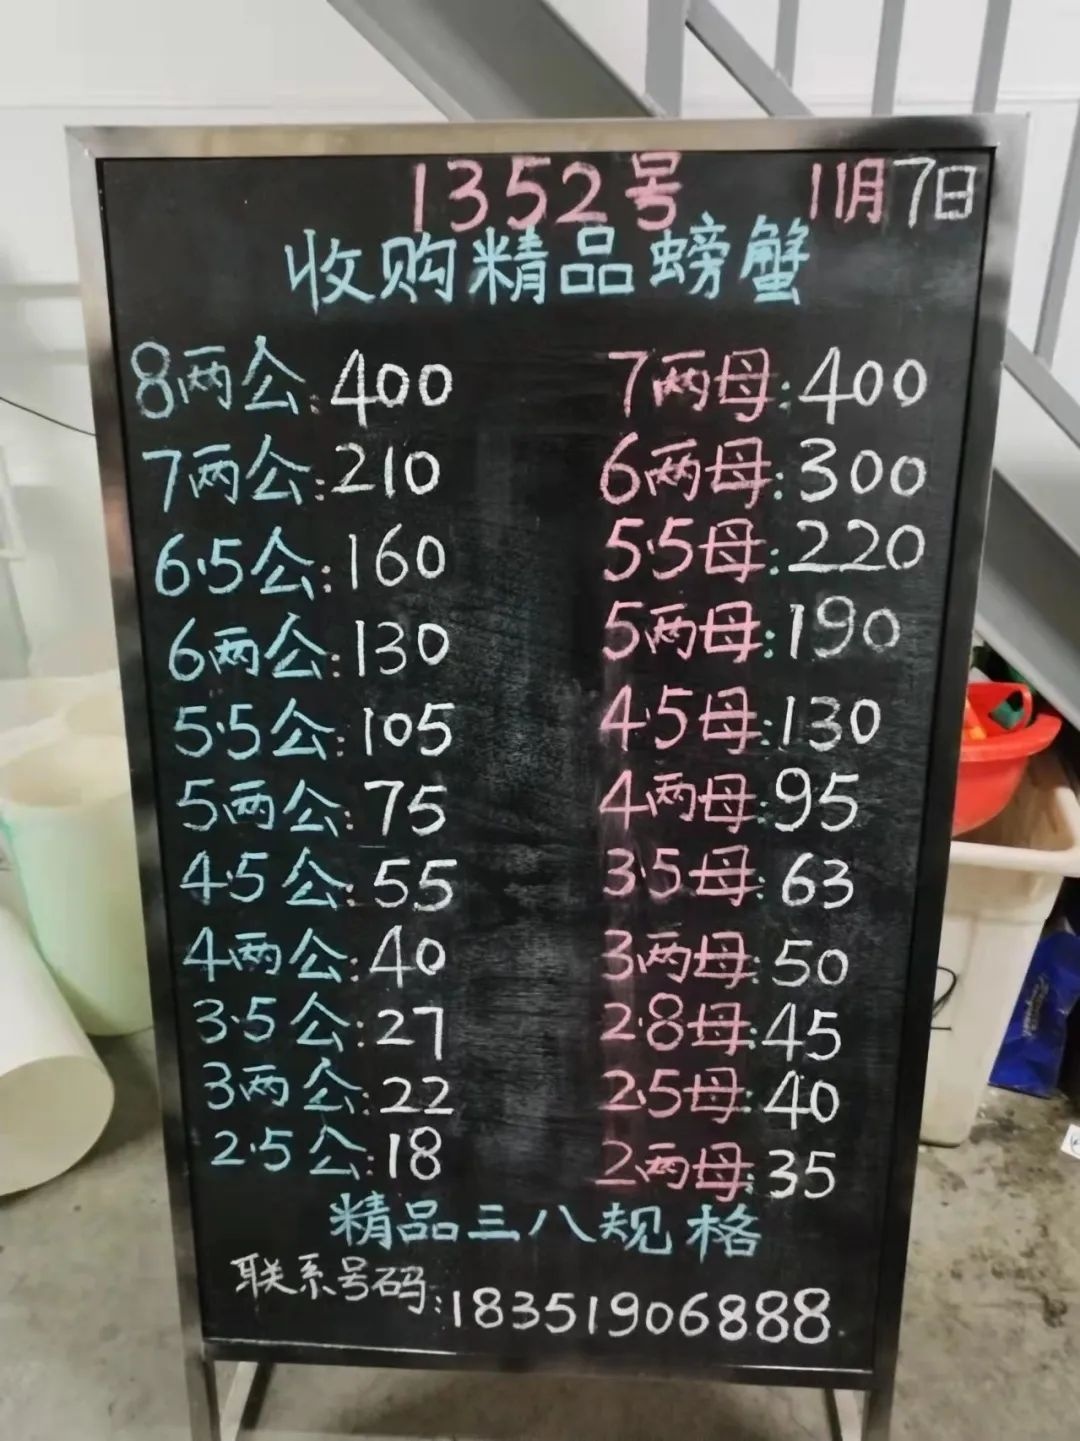 1352号 11月7日
收购精品螃蟹
8两公:400 7两母:400
7两公:210 6两母:300
6.5公:160 5.5母:220
6两公:130 5两母:190
5.5公:105 4.5母:130
5两公:75 4两母:95
4.5公:55 3.5母:63
4两公:40 3两母:50
3.5公:27 2.8母:45
3两公:22 2.5母:40
2.5公:18 2两母:35
精品三八规格
联系号码:18351906888